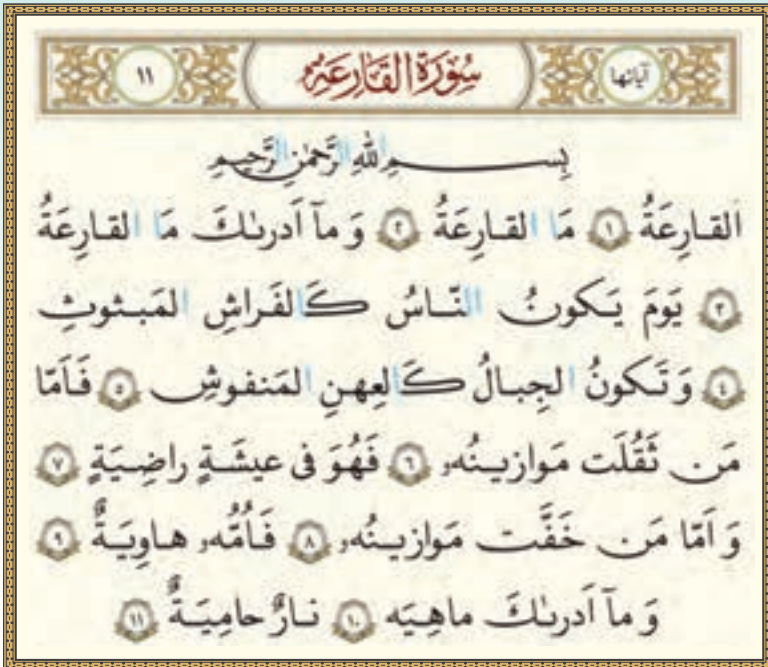 آیاتها سُورَةُ القَارِعَةِ ١١
بِسمِ اللّٰهِ الرَّحمٰنِ الرَّحیمِ
اَلقارِعَةُ ١ مَا القارِعَةُ ٢ وَ مآ اَدرىٰكَ مَا القارِعَةُ
٣ یَومَ یَكونُ النّاسُ كَالفَراشِ المَبثوثِ
٤ وَ تَكونُ الجِبالُ كَالعِهنِ المَنفوشِ ٥ فَاَمّا
مَن ثَقُلَت مَوازینُهٗ ٦ فَهُوَ فی عیشَةٍ راضِیَةٍ ٧
وَ اَمّا مَن خَفَّت مَوازینُهٗ ٨ فَاُمُّهٗ هاوِیَةٌ ٩
وَ مآ اَدرىٰكَ ماهِیَه ١٠ نارٌ حامِیَةٌ ١١